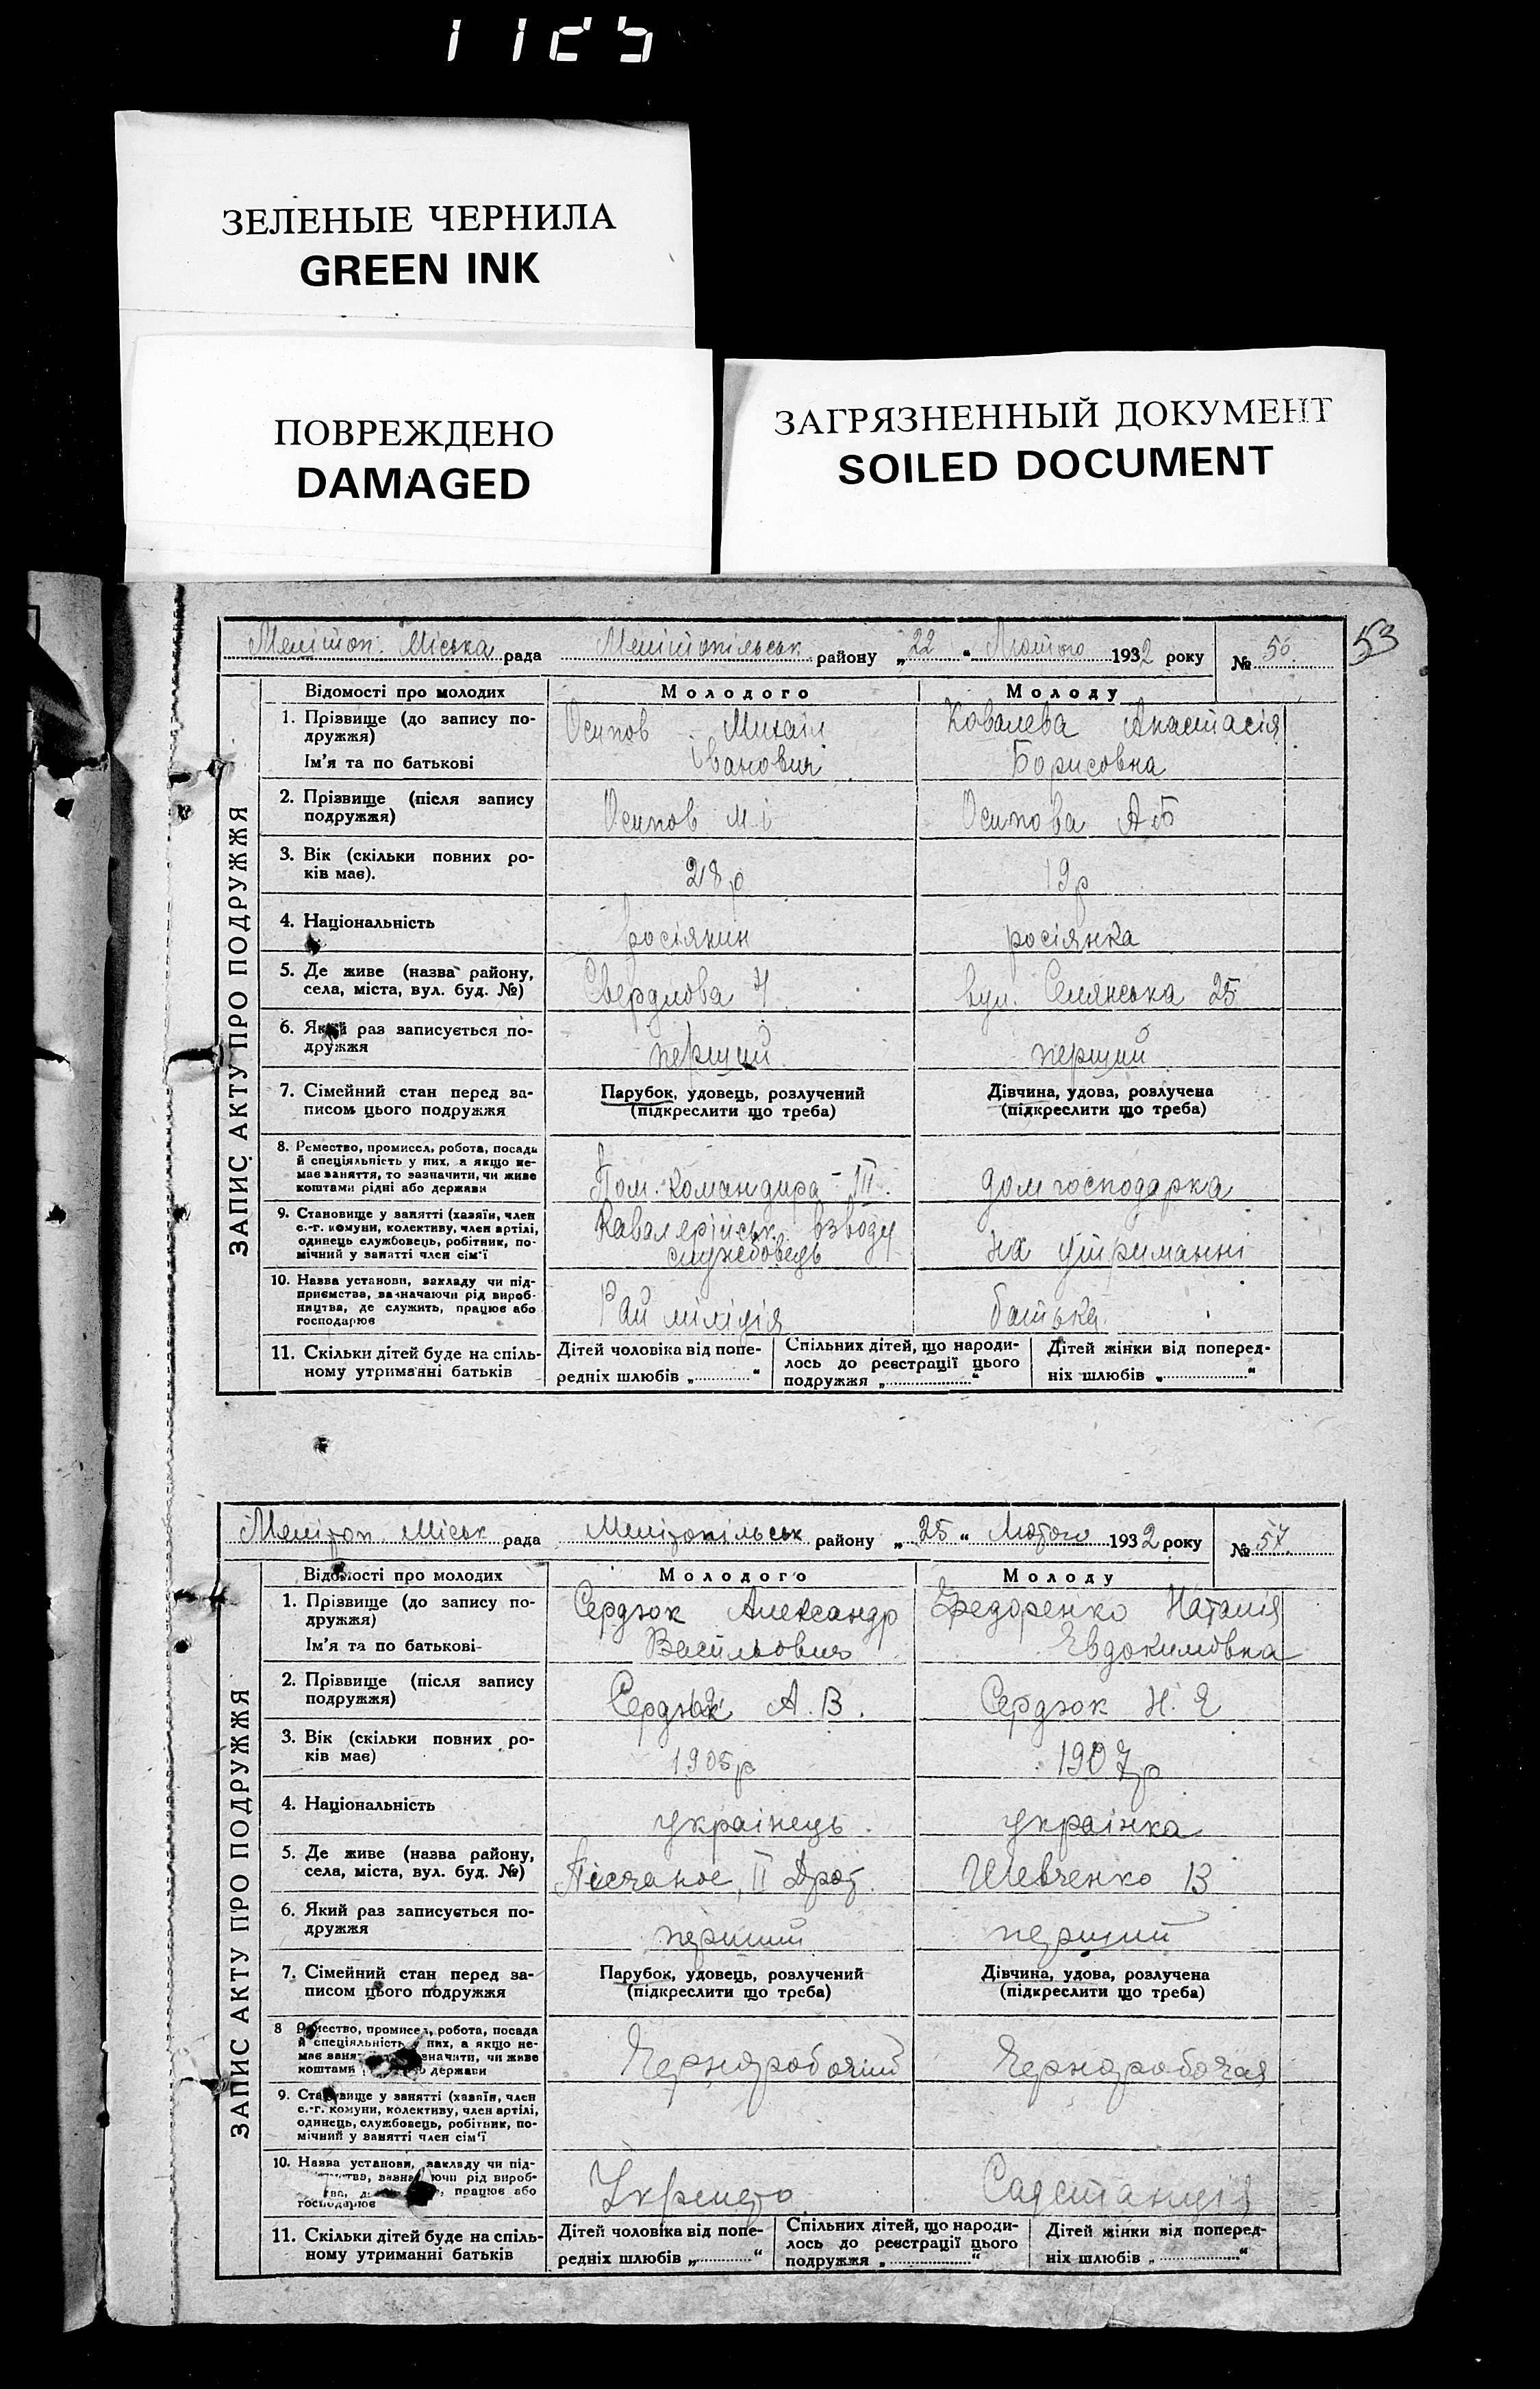 1125
ЗЕЛЕНЫЕ ЧЕРНИЛА
GREEN INK
ПОВРЕЖДЕНО
DAMAGED
ЗАГРЯЗНЕННЫЙ ДОКУМЕНТ
SOILED DOCUMENT
53
Мелітоп. Міська рада Мелітопільськ. району „22“ Лютого 1932 року № 56
ЗАПИС АКТУ ПРО ПОДРУЖЖЯ
Відомості про молодих Молодого Молоду
1. Прізвище (до запису подружжя) Осипов Михаіл Ковалева Анастасія
Ім'я та по батькові Іванович Борисовна
2. Прізвище (після запису Осипов М І Осипова А Б
подружжя)
3. Вік (скільки повних ро- 28 р 19 р
ків має).
4. Національність росіянин росіянка
5. Де живе (назва району, Свердлова вул. Селянська 25
села, міста, вул. буд. №)
6. Який раз записується по- перший перший
дружжя
7. Сімейний стан перед за- Парубок, удовець, розлучений Дівчина, удова, розлучена
писом цього подружжя (підкреслити що треба) (підкреслити що треба)
8. Ремество, промисел, робота, посада
й спеціяльність у них, а якщо не-
має заняття, то зазначити, чи живе Пом. командира III. домгосподарка
коштами рідні або держави
9. Становище у занятті (хазяїн, член Кавалерійськ. взводу
с.-г. комуни, колективу, член артілі, службовець на утриманні
одинець службовець, робітник, по-
мічний у занятті член сім'ї
10. Назва установи, закладу чи під-
приємства, зазначаючи рід вироб-
ництва, де служить, працює або Рай міліція батька.
господарює
11. Скільки дітей буде на спіль- Дітей чоловіка від попе- Спільних дітей, що народи- Дітей жінки від поперед-
ному утриманні батьків редніх шлюбів „............“ лось до реєстрації цього ніх шлюбів „............“
подружжя „............“
Мелітоп. Міськ рада Мелітопільськ району „25“ Лютого 1932 року № 57.
ЗАПИС АКТУ ПРО ПОДРУЖЖЯ
Відомості про молодих Молодого Молоду
1. Прізвище (до запису по- Сердюк Александр Федоренко Наталія
дружжя)
Ім'я та по батькові Васильович Евдокимовна
2. Прізвище (після запису Сердюк А. В. Сердюк Н. Е
подружжя)
3. Вік (скільки повних ро- 1905 р 1907 р
ків має)
4. Національність українець. українка
5. Де живе (назва району, Пісчаное, II Шевченко 13
села, міста, вул. буд. №)
6. Який раз записується по- перший перший
дружжя
7. Сімейний стан перед за- Парубок, удовець, розлучений Дівчина, удова, розлучена
писом цього подружжя (підкреслити що треба) (підкреслити що треба)
8 Ремество, промисел, робота, посада
й спеціяльність у них, а якщо не- Чернорабочий Чернорабочая
має значити, чи живе
коштами держави
9. Становище у занятті (хазяїн, член
с.-г. комуни, колективу, член артілі,
одинець, службовець, робітник, по-
мічний у занятті член сім'ї
10. Назва установи, закладу чи під-
рід вироб-
працює або Садстанція
господарює
11. Скільки дітей буде на спіль- Дітей чоловіка від попе- Спільних дітей, що народи- Дітей жінки від поперед-
ному утриманні батьків редніх шлюбів „............“ лось до реєстрації цього ніх шлюбів „............“
подружжя „............“